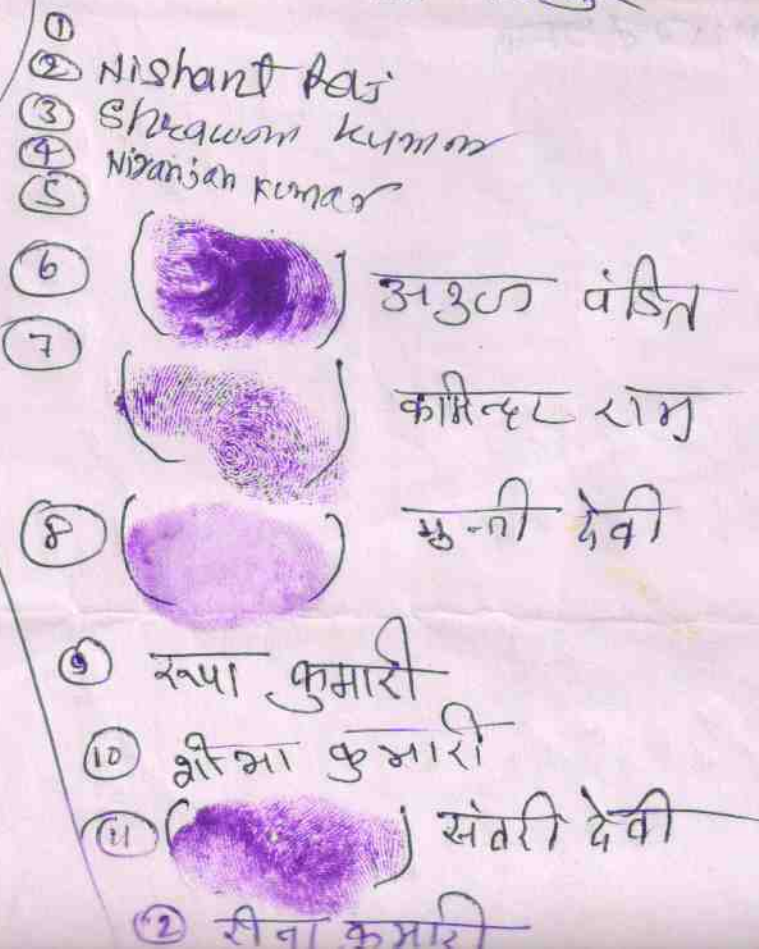 ①
② Nishant Raj
③ Shrawan Kumar
④ Niranjan Kumar
⑤
⑥ पंडित
⑦ कामिन्दर राम
⑧ मुन्नी देवी
⑨ रूपा कुमारी
⑩ शोभा कुमारी
⑪ संतरी देवी
⑫ रीना कुमारी